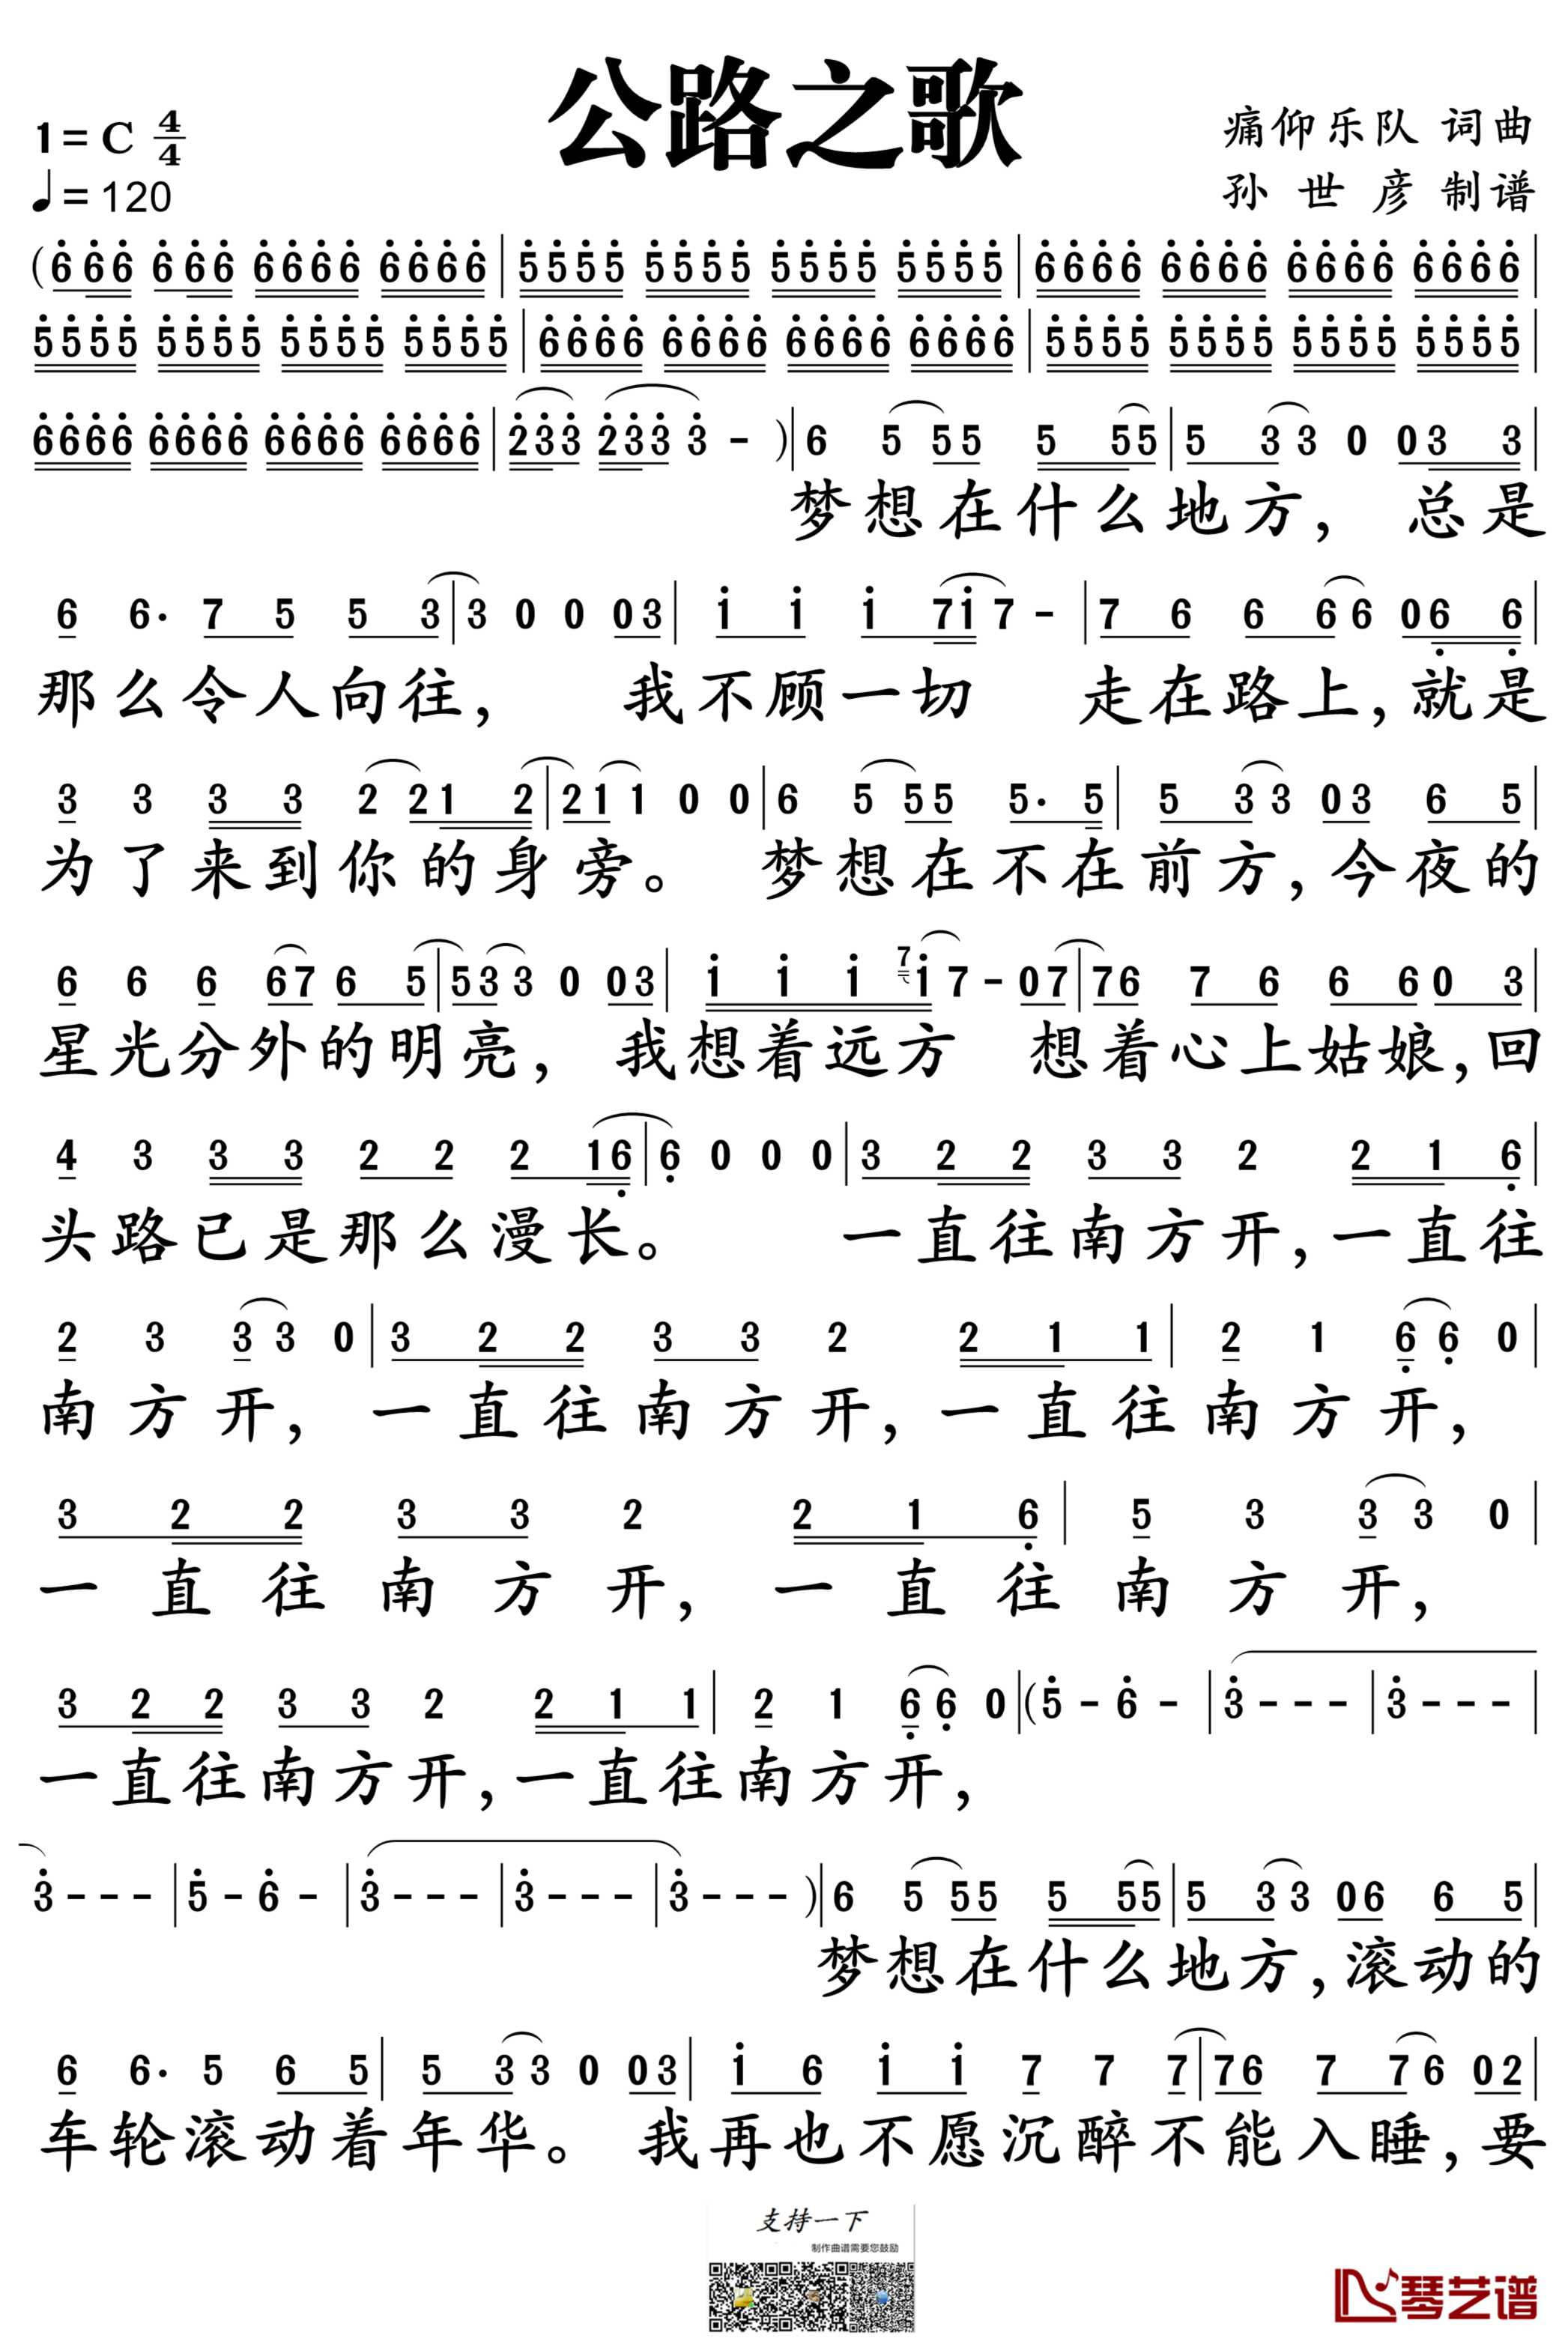 公路之歌
1=C 4/4
♩=120
痛仰乐队 词曲
孙世彦 制谱
(6̇6̇6̇ 6̇6̇6̇ 6̇6̇6̇6̇ 6̇6̇6̇6̇|5̇5̇5̇5̇ 5̇5̇5̇5̇ 5̇5̇5̇5̇ 5̇5̇5̇5̇|6̇6̇6̇6̇ 6̇6̇6̇6̇ 6̇6̇6̇6̇ 6̇6̇6̇6̇|
5̇5̇5̇5̇ 5̇5̇5̇5̇ 5̇5̇5̇5̇ 5̇5̇5̇5̇|6̇6̇6̇6̇ 6̇6̇6̇6̇ 6̇6̇6̇6̇ 6̇6̇6̇6̇|5̇5̇5̇5̇ 5̇5̇5̇5̇ 5̇5̇5̇5̇ 5̇5̇5̇5̇|
6̇6̇6̇6̇ 6̇6̇6̇6̇ 6̇6̇6̇6̇ 6̇6̇6̇6̇|2̇3̇3̇ 2̇3̇3̇ 3̇ - )|6 5 55 5 55|5 3 3 0 03 3|
梦想在什么地方，总是
6 6· 7 5 5 3|3 0 0 03|1̇ 1̇ 1̇ 71̇ 7 -|7 6 6 66 06̣ 6̣|
那么令人向往，我不顾一切 走在路上，就是
3 3 3 3 2 21 2|21 1 0 0|6 5 55 5· 5|5 3 3 03 6 5|
为了来到你的身旁。梦想在不在前方，今夜的
6 6 6 67 6 5|53 3 0 03|1̇ 1̇ 1̇ 7 1̇ 7 - 07|76 7 6 6 60 3|
星光分外的明亮，我想着远方 想着心上姑娘，回
4 3 3 3 2 2 2 16̣|6̣ 0 0 0|3 2 2 3 3 2 2 1 6̣|
头路已是那么漫长。一直往南方开，一直往
2 3 3 3 0|3 2 2 3 3 2 2 1 1|2 1 6̣ 6̣ 0|
南方开，一直往南方开，一直往南方开，
3 2 2 3 3 2 2 1 6̣|5 3 3 3 0|
一直往南方开，一直往南方开，
3 2 2 3 3 2 2 1 1|2 1 6̣ 6̣ 0|(5̇ - 6̇ -|3̇ - - -|3̇ - - -|
一直往南方开，一直往南方开，
3̇ - - -|5̇ - 6̇ -|3̇ - - -|3̇ - - -|3̇ - - - )|6 5 55 5 55|5 3 3 06 6 5|
梦想在什么地方，滚动的
6 6· 5 6 5|5 3 3 0 03|1̇ 6 1̇ 1̇ 7 7 7|76 7 7 6 02|
车轮滚动着年华。我再也不愿沉醉不能入睡，要
支持一下
制作曲谱需要您鼓励
琴艺谱